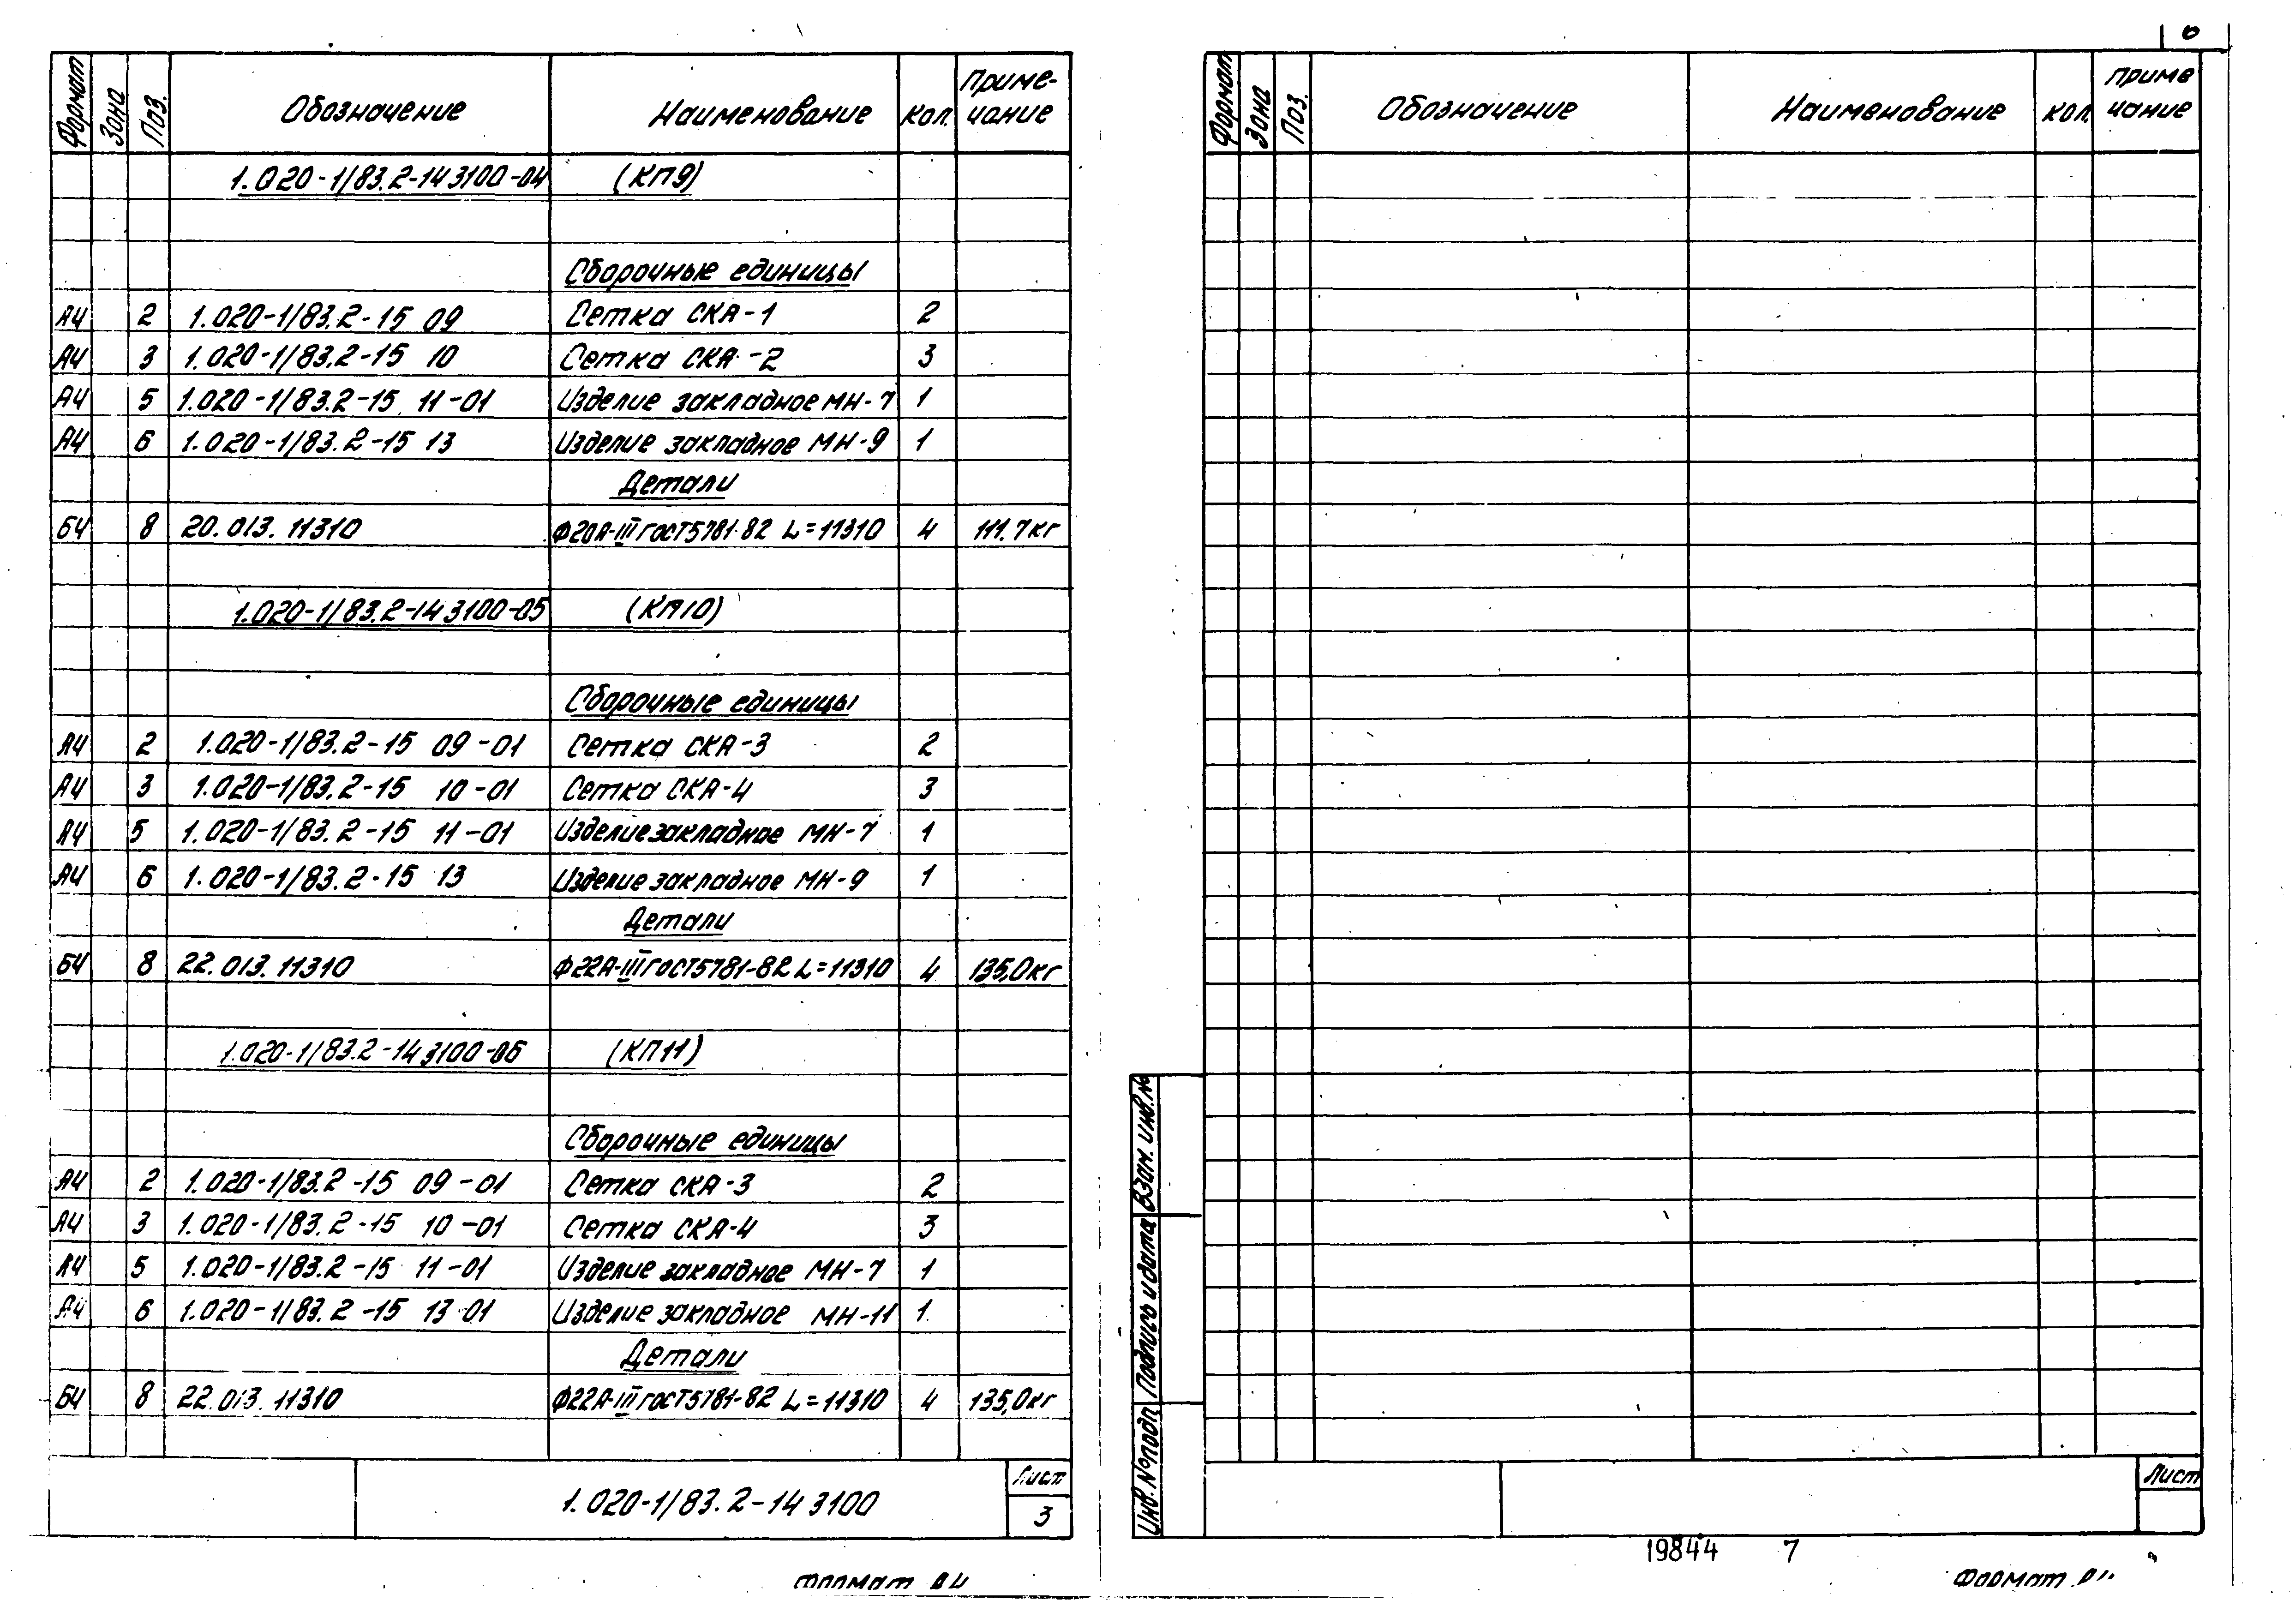 Формат Зона Поз. Обозначение Наименование Кол. Приме-
чание
1.020-1/83.2-14 3100-04 (КП9)
Сборочные единицы
А4 2 1.020-1/83.2-15 09 Сетка СКА-1 2
А4 3 1.020-1/83.2-15 10 Сетка СКА-2 3
А4 5 1.020-1/83.2-15 11-01 Изделие закладное МН-7 1
А4 6 1.020-1/83.2-15 13 Изделие закладное МН-9 1
Детали
БЧ 8 20.013.11310 Ф20А-III ГОСТ5781-82 L=11310 4 111.7кг
1.020-1/83.2-14 3100-05 (КП10)
Сборочные единицы
А4 2 1.020-1/83.2-15 09-01 Сетка СКА-3 2
А4 3 1.020-1/83.2-15 10-01 Сетка СКА-4 3
А4 5 1.020-1/83.2-15 11-01 Изделие закладное МН-7 1
А4 6 1.020-1/83.2-15 13 Изделие закладное МН-9 1
Детали
БЧ 8 22.013.11310 Ф22А-III ГОСТ5781-82 L=11310 4 135,0кг
1.020-1/83.2-14 3100-06 (КП11)
Сборочные единицы
А4 2 1.020-1/83.2-15 09-01 Сетка СКА-3 2
А4 3 1.020-1/83.2-15 10-01 Сетка СКА-4 3
А4 5 1.020-1/83.2-15 11-01 Изделие закладное МН-7 1
А4 6 1.020-1/83.2-15 13-01 Изделие закладное МН-11 1
Детали
БЧ 8 22.013.11310 Ф22А-III ГОСТ5781-82 L=11310 4 135,0кг
1.020-1/83.2-14 3100
Лист
3
Формат А4
Формат Зона Поз. Обозначение Наименование Кол. Приме
чание
Взам. инв. №
Подпись и дата
Инв. № подл.
Лист
19844 7
Формат